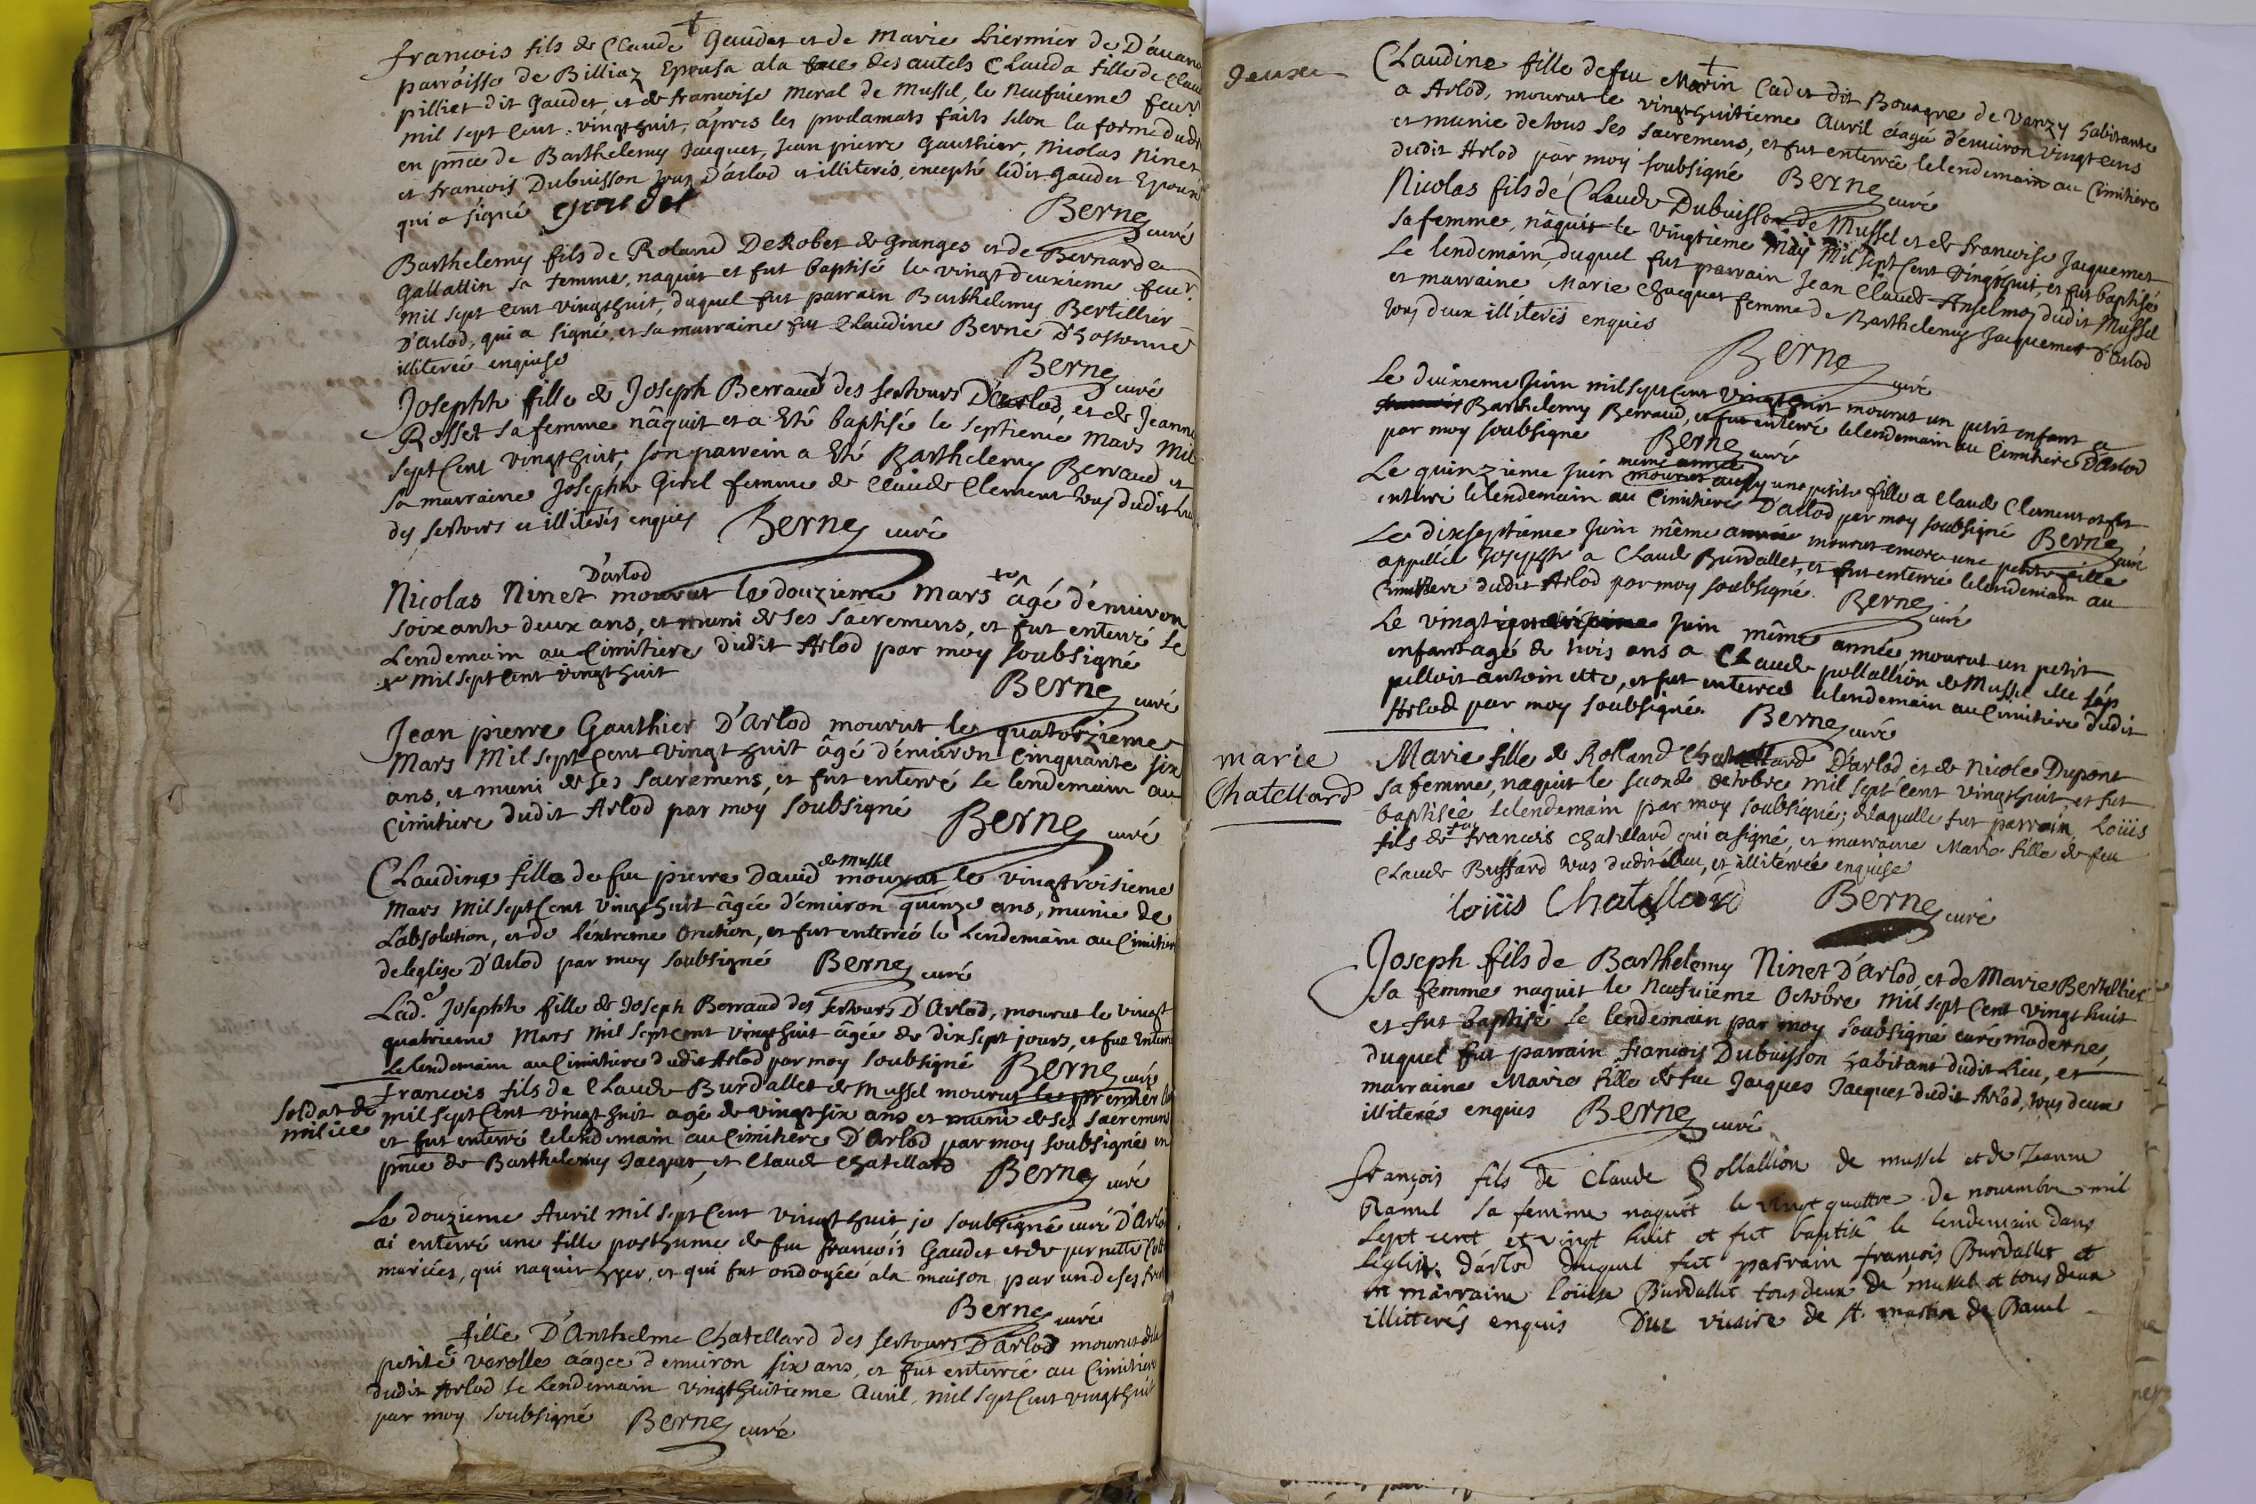 francois fils de Claude Gaudet et de Marie Liermier de D'auano
parroisse de Billiaz Epousa a la face des autels Clauda fille de Clau
pilliet dit Gaudet, et de francoise Meral de Mussel, le Neufuieme feur
mil sept cent vingt huit, apres les proclamats faits selon la forme du dr
en pnce de Barthelemy Jacquet, Jean pierre Gauthier, Nicolas Ninet
et francois Dubuisson tous D'arlod et illiterés, excepté ledit Gaudet Epoux
qui a signé Goudet Berne curé
Barthelemy fils de Roland DeRobet de Granges et de Bernarde
Gallattin sa femme, naquit et fut baptisé le vingt deuxieme feur.
mil sept cent vingt huit, duquel fut parrain Barthelemy Bertillier
D'arlod, qui a signé, et sa marraine fut Claudine Berne
illiterée enquise Berne curé
Josephte fille de Joseph Berraud des sertours D'arlod, et de Jeanne
Rosset sa femme nâquit et a Eté baptisé le septieme Mars Mil
sept cent vingt huit, son parrein a Eté Barthelemy Berraud et
sa marraine Josephte Girel femme de Claude Clement tous dudit Lieu
des sertours et illiterés enquis Berne curé
Nicolas Ninet D'arlod mourut le douzieme Mars + âgé d'enuiron
soixante deux ans, et muni de ses sacremens, et fut enterré le
Lendemain au Cimitiere dudit Arlod par moy soubsigné
+ mil sept cent vingt huit Berne curé
Jean pierre Gauthier D'arlod mourut le quatorzieme
Mars Mil sept cent vingt huit âgé d'enuiron Cinquante six
ans, et muni de ses sacremens, et fut enterré le lendemain au
Cimitiere dudit Arlod par moy soubsigné Berne curé
Claudine fille de feu pierre Dauid de Mussel mourut le vingtroisieme
Mars Mil sept cent vingt huit âgée d'enuiron quinze ans, munie de
L'absolution, et de l'extreme Onction, et fut enterrée le Lendemain au Cimitiere
de l'eglise D'arlod par moy soubsigné Berne curé
Lad.e Josephte fille de Joseph Berraud des sertours D'arlod, mourut le vingt
quatrieme Mars mil sept cent vingt huit âgée de dix sept jours, et fut Enterrée
le lendemain au Cimitiere dudit Arlod par moy soubsigné Berne curé
francois fils de Claude Burdallet de Mussel mourut le premier
soldat de milice
mil sept cent vingt huit agé de vingt six ans et muni de ses sacremens
et fut enterré le lendemain au Cimitiere D'arlod par moy soubsigné en
pnce de Barthelemy Jacquet, et Claude Chatellard Berne curé
Le douzieme Auril mil sept cent vingt huit, je soubsigné curé D'arlod
ai enterré une fille posthume de feu francois Gaudet et de pernette
mariées, qui naquit hyer, et qui fut ondoyée a la maison par un de ses
Berne curé
fille D'Anthelme Chatellard des sertours D'arlod mourut de la
petite verolle aagée d'enuiron six ans, et fut enterrée au Cimitiere
dudit Arlod le Lendemain vingt huitieme Auril mil sept cent vingt huit
par moy soubsigné Berne curé
Claudine fille de feu Marin Cadet dit Bourgne de Vanzy habitante
a Arlod, mourut le vingt huitieme Auril âagé d'enuiron vingt ans
et munie de tous ses sacremens, et fut enterrée le lendemain au Cimitiere
dudit Arlod par moy soubsigné Berne curé
Nicolas fils de Claude Dubuisson de Mussel et de francoise Jacquemet
sa femme, nâquit le vingtieme May Mil sept cent vingt huit, et fut baptisé
Le lendemain, duquel fut parrain Jean Claude Anselme dudit Mussel
et marraine Marie Chacquet femme de Barthelemy Jacquemet d'arlod
tous deux illiterés enquis
Berne curé
Le deuxieme Juin mil sept cent vingt huit mourut un petit enfant a
Barthelemy Berraud, et fut enterré le lendemain au Cimitiere D'arlod
par moy soubsigné Berne curé
Le quinzieme Juin meme année mourut aussy une petite fille a Claude Clement et fut
enterré le lendemain au Cimitiere D'arlod par moy soubsigné Berne curé
Le dixseptieme Juin même année mourut encore une petite fille
appellée Josephte a Claude Burdallet, et fut enterrée le lendemain au
Cimitiere dudit Arlod par moy soubsigné. Berne curé
Le vingt Juin même année mourut un petit
enfant agé de trois ans a Claude pollallion de Mussel elle s'ap
pelloit antoinette, et fut enterrée le lendemain au Cimitiere dudit
Arlod par moy soubsigné. Berne curé
marie
Chatellard
Marie fille de Rolland Chatellard D'arlod et de Nicole Dupont
sa femme, naquit le second octobre mil sept cent vingt huit, et fut
baptisée le lendemain par moy soubsigné; de laquelle fut parrain Loüis
fils de feu francois Chatellard qui a signé, et marraine Marie fille de feu
Claude Bussard tous dudit lieu, et illiterée enquise
loüis Chatellard Berne curé
Joseph fils de Barthelemy Ninet D'arlod et de Marie Bertellier
sa femme naquit le Neufuieme Octobre Mil sept cent vingt huit
et fut baptisé le lendemain par moy soubsigné curé moderne,
duquel fut parrain francois Dubuisson habitant dudit Lieu, et
marraine Marie fille de feu Jacques Jacquet dudit Arlod, tous deux
illiterés enquis Berne curé
françois fils de Claude Pollallion de mussel et de Jeanne
Ramel sa femme naquit le vingt quattre de nouembre mil
sept cent et vingt huit et fut baptisé le lendemain dans
l'eglise d'arlod duquel fut parrain françois Burdallet et
et marraine loüise Burdallet tous deux de mussel et tous deux
illitterés enquis Duc vicaire de st. martin de Bauel